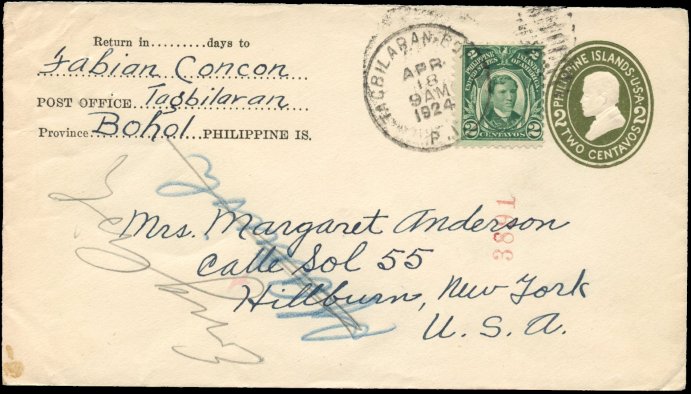 Return in.........days to
Fabian Concon
POST OFFICE Tagbilaran
Province Bohol PHILIPPINE IS.
TAGBILARAN, BO
APR
18
9AM
1924
P.I.
PHILIPPINE ISLANDS
UNITED STATES OF AMERICA
2 CENTAVOS 2
PHILIPPINE ISLANDS·U·S·A·
2 TWO CENTAVOS 2
3891
Mrs. Margaret Anderson
Calle Sol 55
Hillburn, New York
U. S. A.